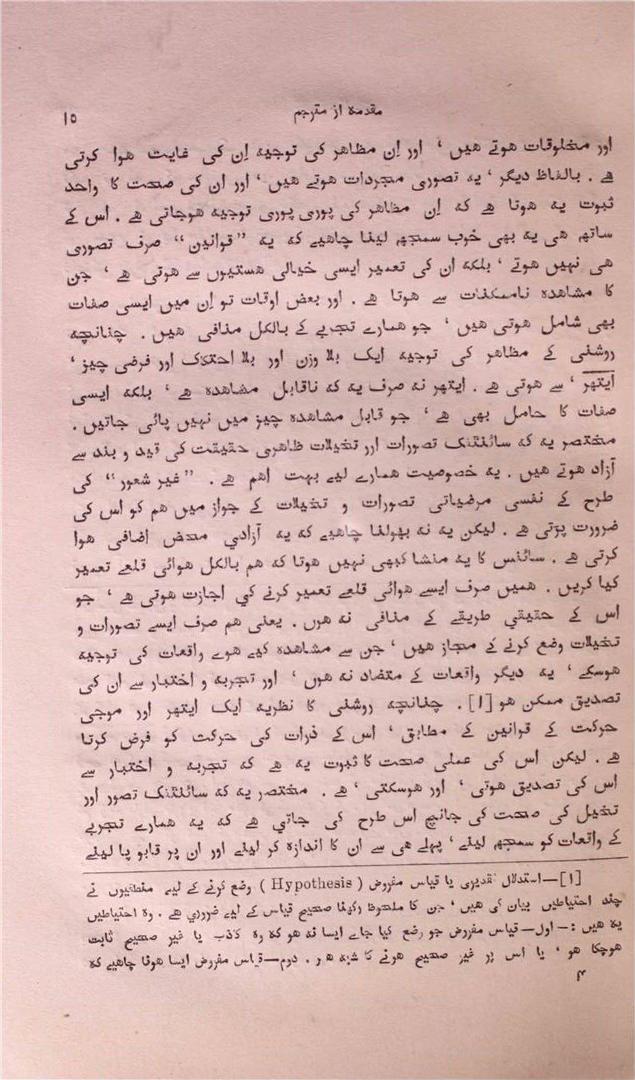 مقدمہ از مترجم ۱۵
اور مخلوقات ہوتے ہیں ' اور اِن مظاہر کی توجیہ اِن کی غایت ہوا کرتی
ہے . بالفاظ دیگر ' یہ تصوری مجردات ہوتے ہیں ' اور ان کی صحت کا واحد
ثبوت یہ ہوتا ہے کہ اِن مظاہر کی پوری پوری توجیہ ہوجاتی ہے . اس کے
ساتھ ہی یہ بھی خوب سمجھ لینا چاہیے کہ یہ ”قوانین“ صرف تصوری
ہی نہیں ہوتے ' بلکہ ان کی تعمیر ایسی خیالی ہستیوں سے ہوتی ہے ' جن
کا مشاہدہ ناممکنات سے ہوتا ہے . اور بعض اوقات تو اِن میں ایسی صفات
بھی شامل ہوتی ہیں ' جو ہمارے تجربے کے بالکل منافی ہیں . چنانچہ
روشنی کے مظاہر کی توجیہ ایک بلا وزن اور بلا احتکاک اور فرضی چیز '
ایتھر ' سے ہوتی ہے . ایتھر نہ صرف یہ کہ ناقابل مشاہدہ ہے ' بلکہ ایسی
صفات کا حامل بھی ہے ' جو قابل مشاہدہ چیز میں نہیں پائی جاتیں .
مختصر یہ کہ سائنٹفک تصورات اور تخیلات ظاہری حقیقت کی قید و بند سے
آزاد ہوتے ہیں . یہ خصوصیت ہمارے لیے بہت اہم ہے . ”غیر شعور“ کی
طرح کے نفسی مرضیاتی تصورات و تخیلات کے جواز میں ہم کو اس کی
ضرورت پڑتی ہے . لیکن یہ نہ بھولنا چاہیے کہ یہ آزادي محض اضافی ہوا
کرتی ہے . سائنس کا یہ منشا کبھی نہیں ہوتا کہ ہم بالکل ہوائی قلعے تعمیر
کیا کریں . ہمیں صرف ایسے ہوائی قلعے تعمیر کرنے کي اجازت ہوتی ہے ' جو
اس کے حقیقي طریقے کے منافی نہ ہوں . یعنی ہم صرف ایسے تصورات و
تخیلات وضع کرنے کے مجاز ہیں ' جن سے مشاہدہ کیے ہوے واقعات کی توجیہ
ہوسکے ' یہ دیگر واقعات کے متضاد نہ ہوں ' اور تجربہ و اختبار سے ان کی
تصدیق ممکن ہو [۱] . چنانچہ روشنی کا نظریہ ایک ایتھر اور موجی
حرکت کے قوانین کے مطابق ' اس کے ذرات کی حرکت کو فرض کرتا
ہے . لیکن اس کی عملی صحت کا ثبوت یہ ہے کہ تجربہ و اختبار سے
اس کی تصدیق ہوتی ' اور ہوسکتی ' ہے . مختصر یہ کہ سائنٹفک تصور اور
تخیل کی صحت کی جانچ اس طرح کی جاتي ہے کہ یہ ہمارے تجربے
کے واقعات کو سمجھ لینے ' پہلے ہی سے ان کا اندازہ کر لینے اور ان پر قابو پا لینے
[۱]—استدلال تقدیری یا قیاس مفروض (Hypothesis) وضع کرنے کے لیے منطقیوں نے
چند احتیاطیں بیان کی ہیں ' جن کا ملحوظ رکھنا صحیح قیاس کے لیے ضروري ہے . وہ احتیاطیں
یہ ہیں :— اول—قیاس مفروض جو وضع کیا جاے ایسا نہ ہو کہ وہ کاذب یا غیر صحیح ثابت
ہوچکا ہو ' یا اس پر غیر صحیح ہونے کا شبہ ہو . دوم—قیاس مفروض ایسا ہونا چاہیے کہ